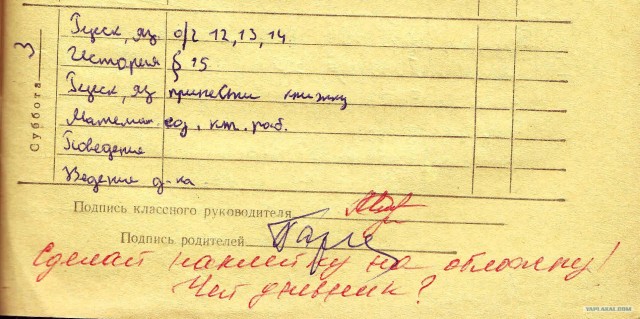 Суббота 3
Русск, яз. о/г 12, 13, 14.
История § 15
Русск, яз принести книжку
Математ. соз, кт. раб.
Поведение
Ведение д-ка
Подпись классного руководителя
Подпись родителей
Сделай наклейку на обложку!
Чей дневник?
YAPLAKAL.COM